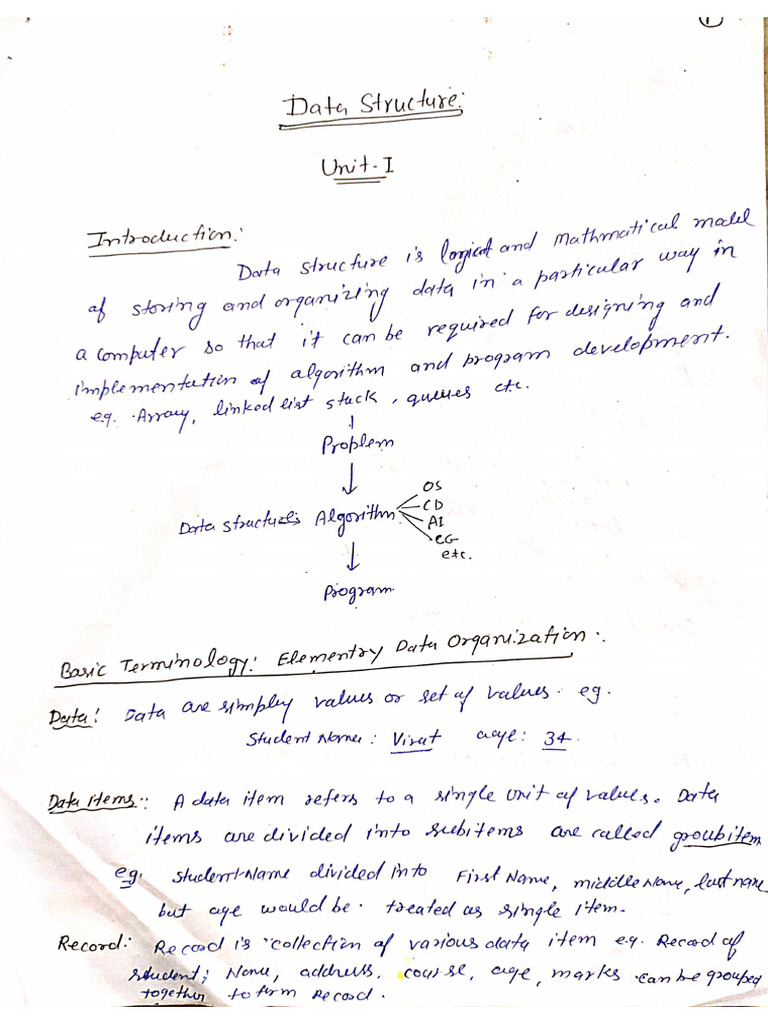 1
Data Structure:
Unit-I
Introduction:
Data structure is logical and Mathmatical model
of storing and organizing data in a particular way in
a computer so that it can be required for designing and
implementation of algorithm and program development.
e.g. Array, linked list stack, queues etc.
Problem
OS
CD
Data structures Algorithm
AI
CG
etc.
Program
Basic Terminology: Elementry Data Organization:
Data: Data are simpley values or set of values. eg.
Student Name: Virat age: 34
Data items: A data item refers to a single unit of values. Data
items are divided into subitems are called groupitem
eg. Student-Name divided into First Name, middle Name, last name
but age would be treated as single item.
Record: Record is collection of various data item e.g. Record of
student; Name, address, course, age, marks can be grouped
together to form Record.